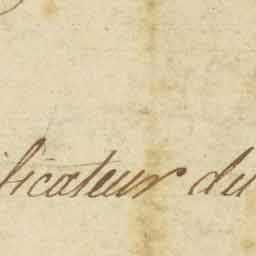 ificateur du